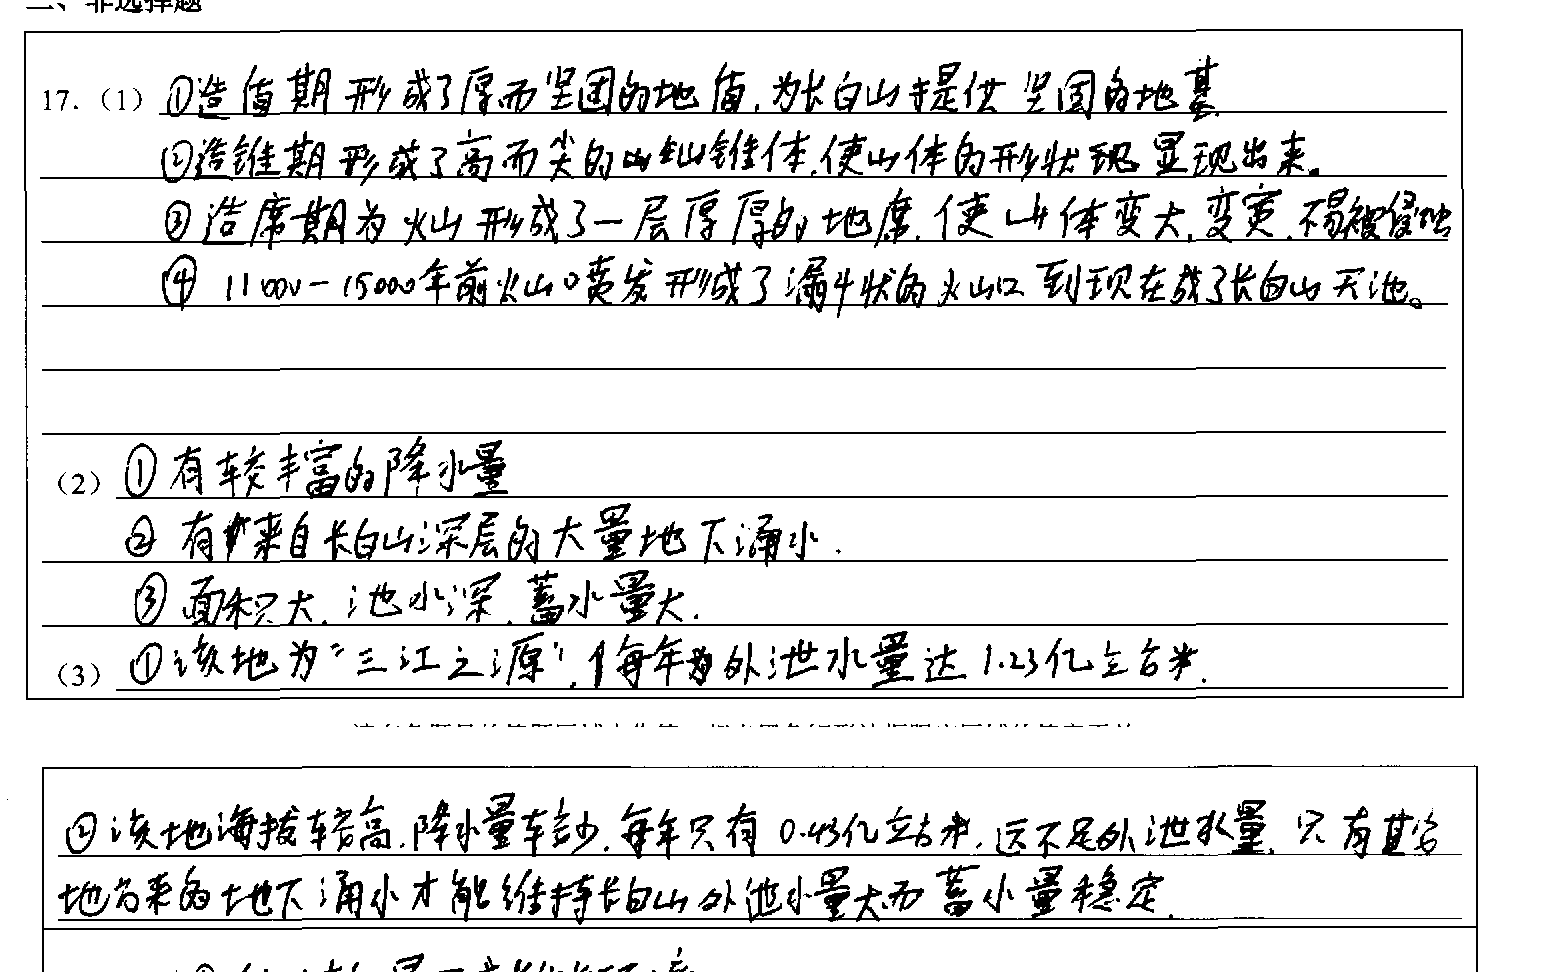 二、非选择题
17.（1）①造盾期形成了厚而坚固的地盾，为长白山提供坚固的地基
②造锥期形成了高而尖的锥体，使山体的形状显现出来。
③造席期为火山形成了一层厚厚的地席，使山体变大，变宽，不易被侵蚀
④ 11000-15000年前火山喷发形成了漏斗状的火山口到现在成了长白山天池。
（2）①有较丰富的降水量
② 有来自长白山深层的大量地下涌水.
③ 面积大，池水深，蓄水量大.
（3）①该地为“三江之源”，每年外泄水量达1.23亿立方米.
②该地海拔较高，降水量较少，每年只有0.43亿立方米，远不足外泄水量，只有其它
地方来的地下涌水才能维持长白山外泄水量大而蓄水量稳定.